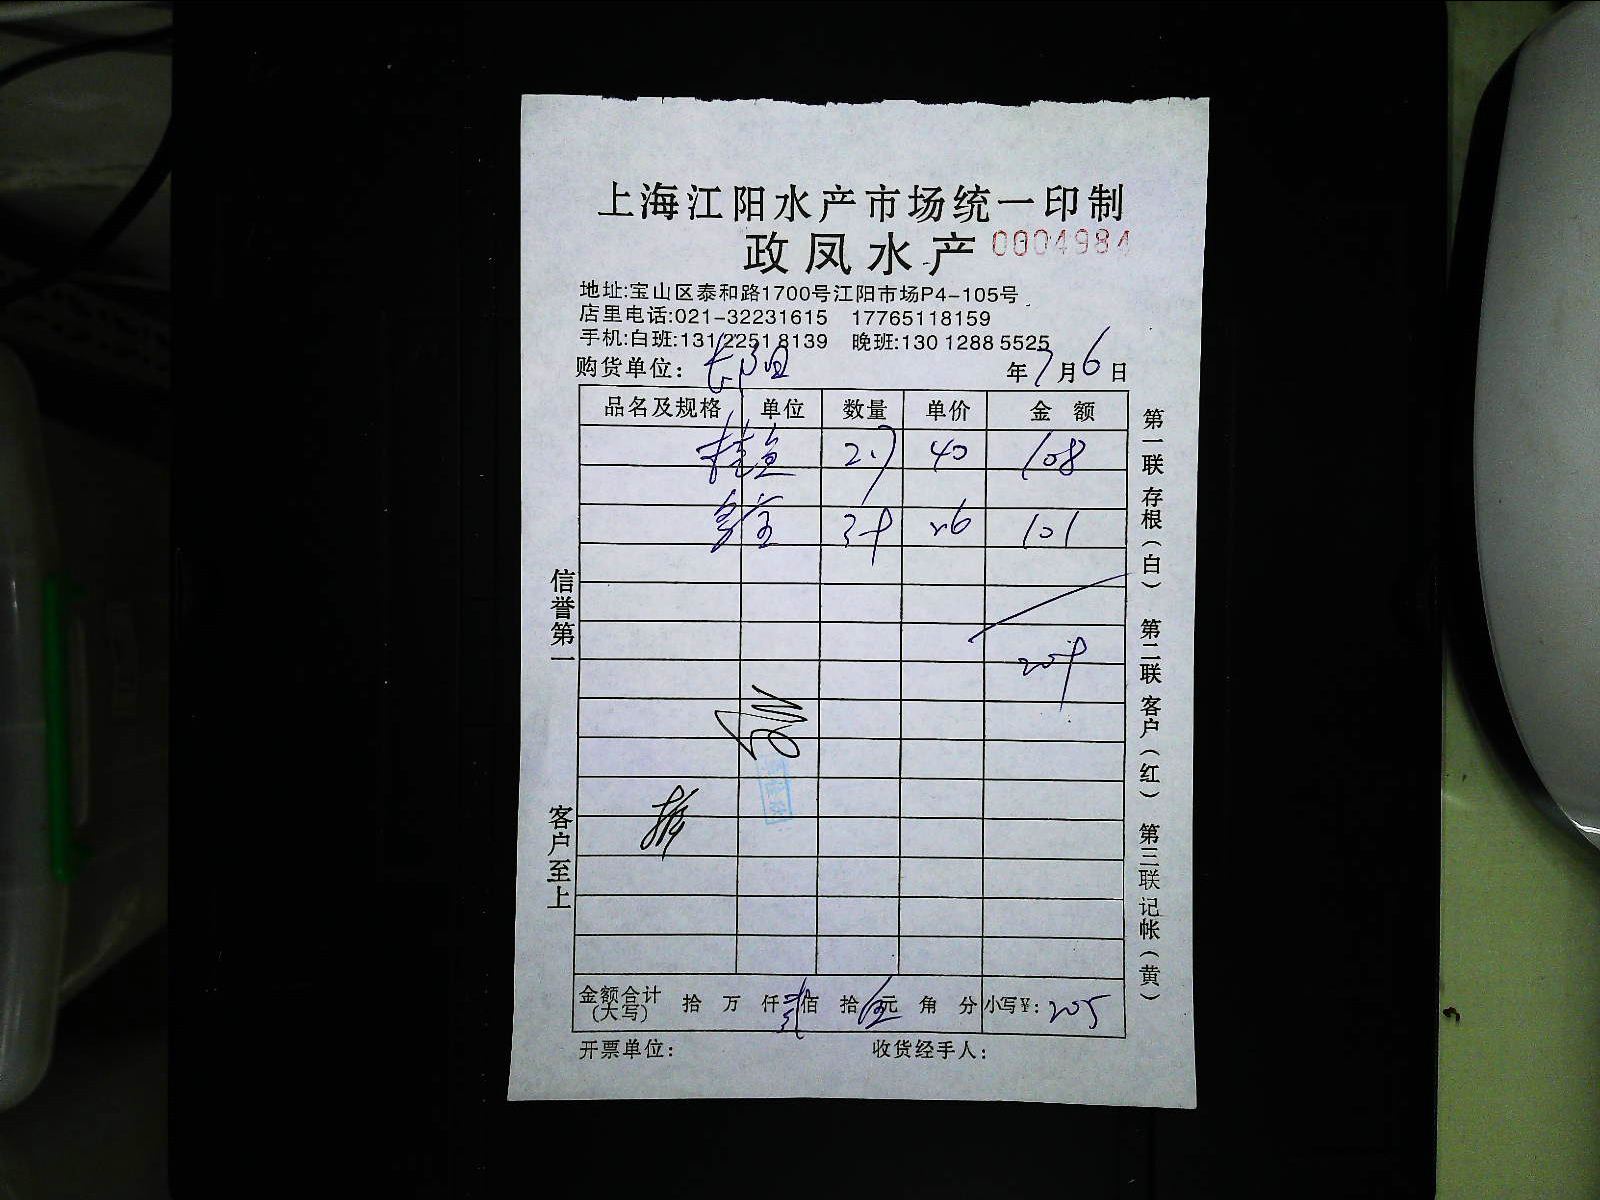 上海江阳水产市场统一印制
政凤水产 0004984
地址:宝山区泰和路1700号江阳市场P4-105号
店里电话:021-32231615 17765118159
手机:白班:131 2251 8139 晚班:130 1288 5525
购货单位: 年7月6日
品名及规格 单位 数量 单价 金 额
桂鱼 2.7 40 108
26 101
209
金额合计(大写) 拾 万 仟贰佰 拾伍元 角 分 小写¥: 205
开票单位: 收货经手人:
信誉第一
客户至上
第一联 存根(白) 第二联 客户(红) 第三联 记帐(黄)